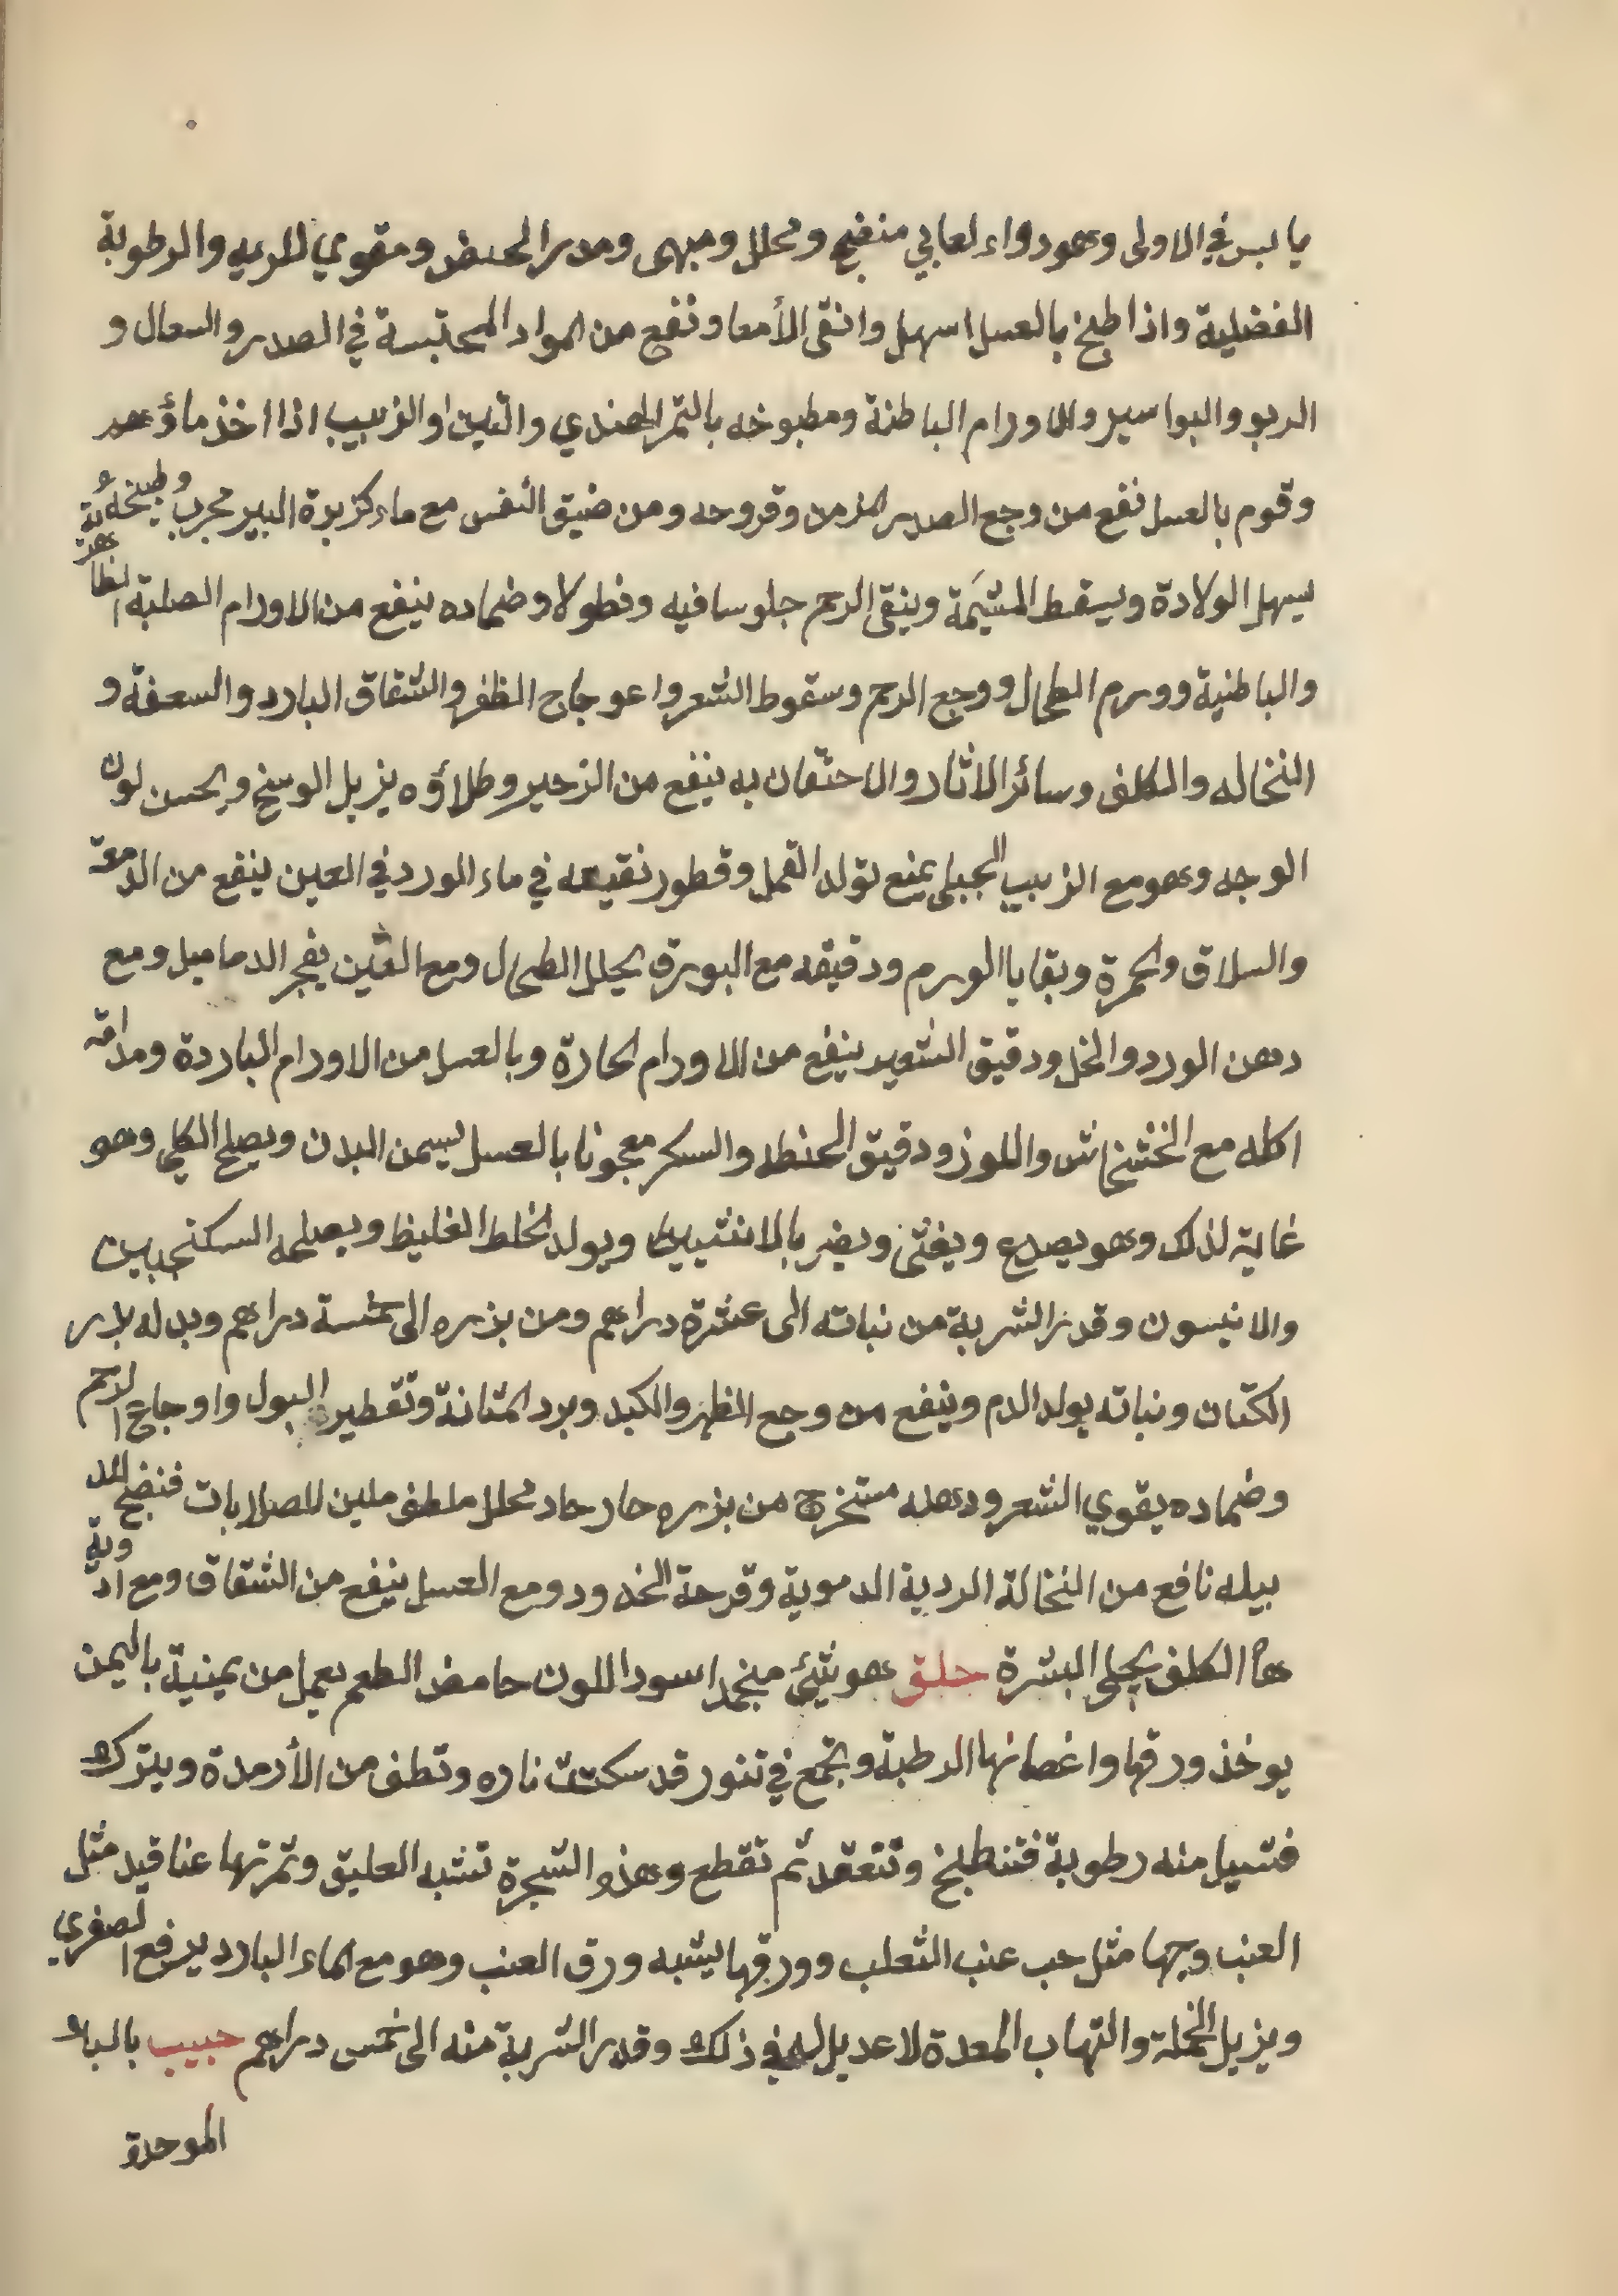 يابس في الاولى وهو دواء لعابي منضج ومحلل ومبهي ومدر الحيض ومقوي للريه والرطوبة
الفضلية واذا طبخ بالعسل اسهل وانقى الأمعا ونفع من المواد المحتبسة في الصدر والسعال و
الربو والبواسير والاورام الباطنة ومطبوخه بالتمر الهندي والتين او الزبيب اذا اخذ ماؤهم
وقوم بالعسل نفع من وجع الصدر المزمن وقروحه ومن ضيق النفس مع ماء كزبرة البير مجرب وطبيخه
يسهل الولادة ويسقط المشيمة وينقى الرحم جلوسا فيه ونطولا وضماده ينفع من الاورام الصلبة الظاهرية
والباطنية وورم الطحال ووجع الرحم وسقوط الشعر واعوجاج الظفر والشقاق البارد والسعفة و
النخاله والكلف وسائر الاثار والاحتقان به ينفع من الزحير وطلاؤه يزيل الوسخ ويحسن لون
الوجه وهو مع الزبيب الجبلي يمنع تولد القمل وقطور نقيعه في ماء الورد في العين ينفع من الدمعة
والسلاق والحمرة وبقايا الورم ودقيقه مع البورق يحلل الطحال ومع التين يفجر الدماميل ومع
دهن الورد والخل ودقيق الشعير ينفع من الاورام الحارة وبالعسل من الاورام الباردة ومداقه
اكله مع الخشخاش واللوز ودقيق الحنطه والسكر معجونا بالعسل يسمن البدن ويصلح الكلى وهو
غاية لذلك وهو يصدع ويغثى ويضر بالانثيين ويولد الخلط الغليظ ويصلحه السكنجبين
والانيسون وقدر الشربة من نباته الى عشرة دراهم ومن بزره الى خمسة دراهم وبدله بزر
الكتان ونباته يولد الدم وينفع من وجع الظهر والكبد وبرد المثانة وتقطير البول واوجاع الرحم
وضماده يقوي الشعر ودهنه مستخرج من بزره حار حاد محلل ملطف ملين للصلابات فنضج الد
بيله نافع من النخالة الردية الدموية وقرحة الخدود ومع العسل ينفع من الشقاق ومع ادوية
ها الكلف يجلى البشرة حلق هو شئ منجمد اسود اللون حامض الطعم يعمل من يمنية باليمن
يوخذ ورقها واغصانها الرطبة وتجمع في تنور قد سكنت ناره وتطف من الأرمدة ويترك
فتسيل منه رطوبة فتنطبخ وتنعقد ثم تقطع وهذه الشجرة تشبه العليق وثمرتها عناقيد مثل
العنب وحبها مثل حب عنب الثعلب وورقها يشبه ورق العنب وهو مع الماء البارد يرفع الصفري
ويزيل الحملة والتهاب المعدة لا عديل له في ذلك وقدر الشربة منه الى خمس دراهم حبيب بالباء
الموحدة